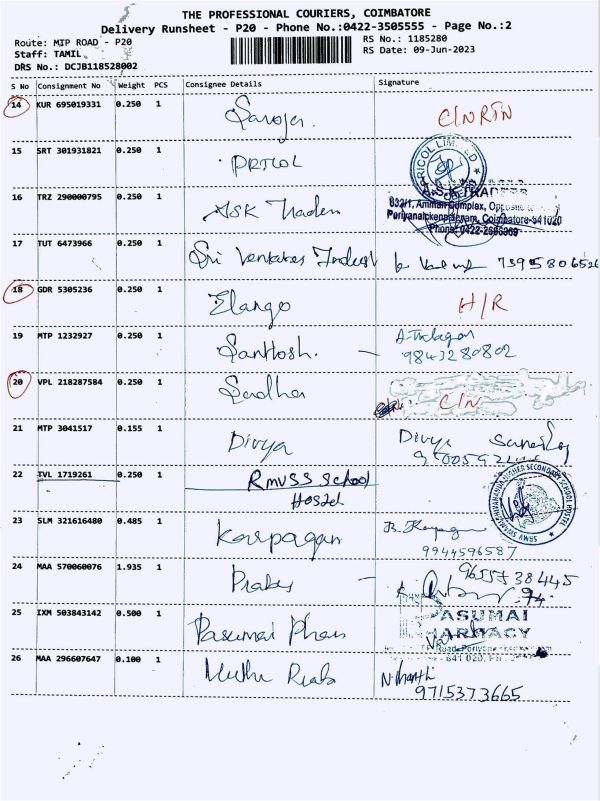 THE PROFESSIONAL COURIERS, COIMBATORE
Delivery Runsheet - P20 - Phone No.:0422-3505555 - Page No.:2
Route: MTP ROAD - P20
RS No.: 1185280
Staff: TAMIL
RS Date: 09-Jun-2023
DRS No.: DCJB118528002
S No Consignment No Weight PCS Consignee Details Signature
14 KUR 695019331 0.250 1 Saroja. C/N RTN
15 SRT 301931821 0.250 1 PRICOL
PRICOL LIMITED
16 TRZ 290000795 0.250 1 ASK Traders
A.S.K TRADERS
832/1, Amman Complex, Opposite
Periyanaickenpalayam, Coimbatore-641020
Phone: 0422-2696969
17 TUT 6473966 0.250 1 Sri Venkates 7395806526
18 GDR 5305236 0.250 1 Elango H/R
19 MTP 1232927 0.250 1 Santhosh. -
9843280802
20 VPL 218287584 0.250 1 Sudha C/N
21 MTP 3041517 0.155 1 Divya Divya
22 TVL 1719261 0.250 1 RMVSS School
Hostel
SWAMI SHIVANANDA HIGHER SECONDARY SCHOOL HOSTEL
23 SLM 321616480 0.485 1 Karpagan
9944596587
24 MAA 570060076 1.935 1 - 9655738445
25 IXM 503843142 0.500 1 Pasumai Pham
PASUMAI
PHARMACY
26 MAA 296607647 0.100 1 Muthu
9715373665